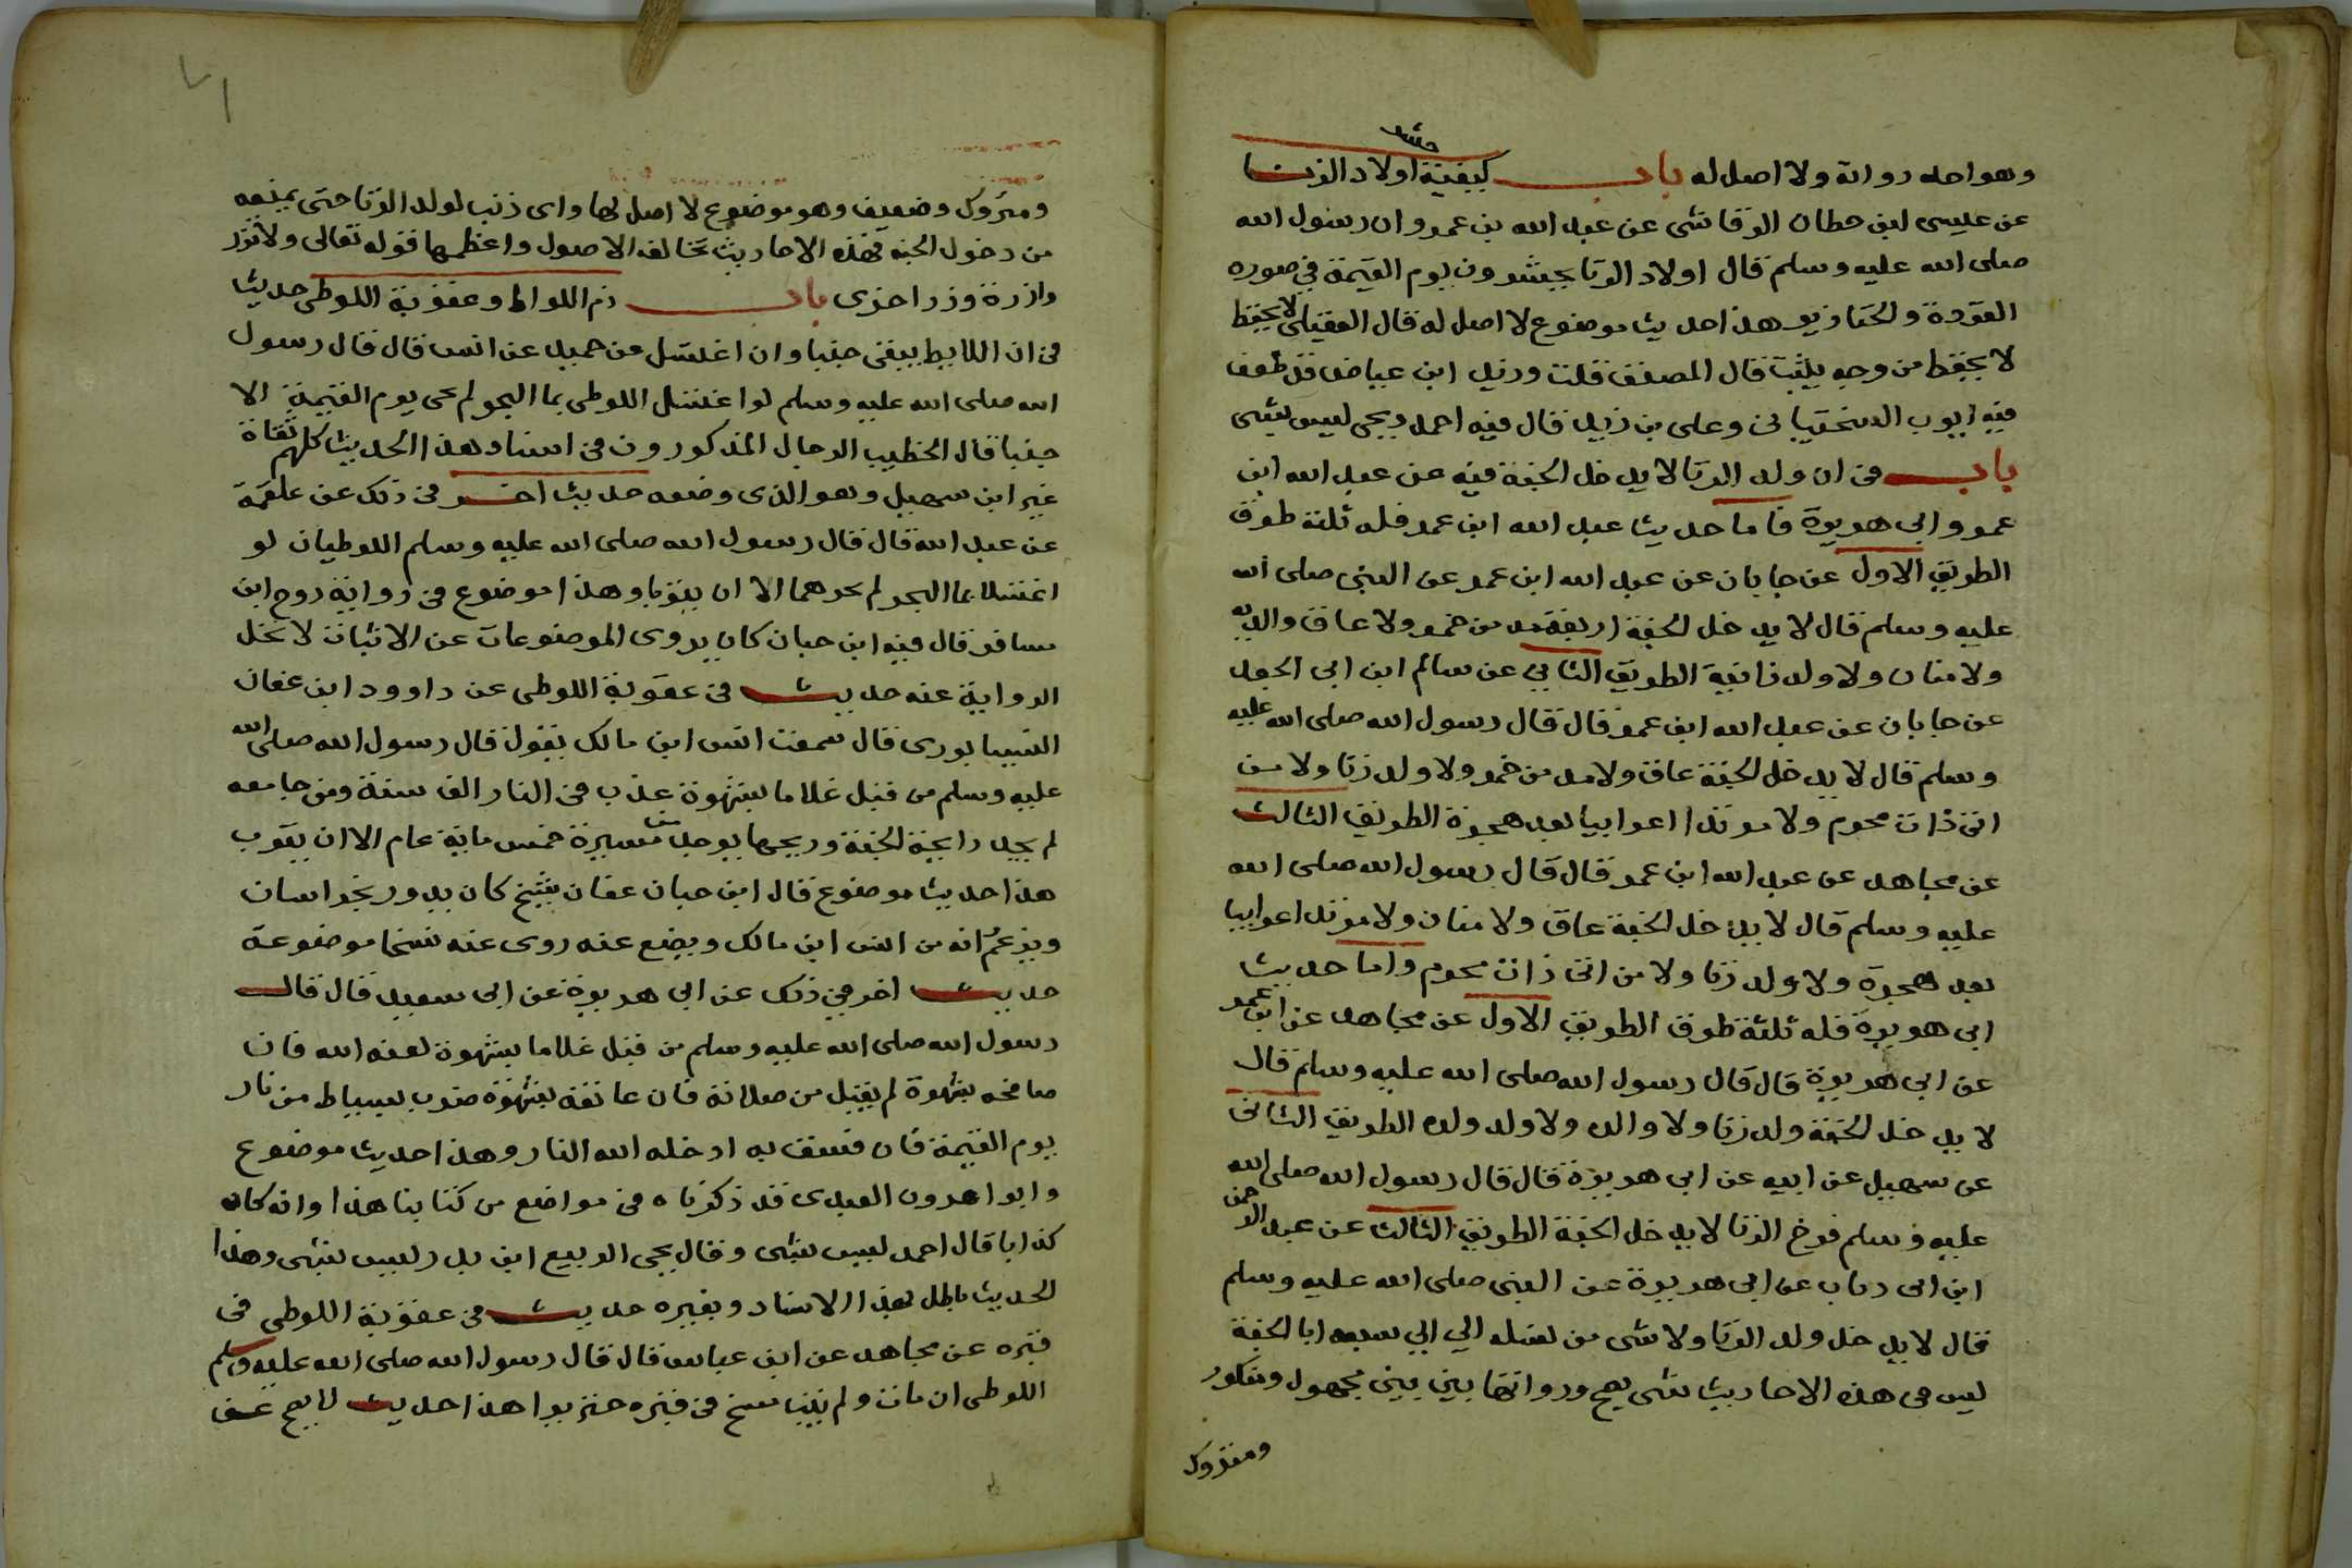 وهو احد رواته ولا اصل له باب كيفية حشر اولاد الزنا
عن عيسى ابن حطان الرقاشى عن عبد الله بن عمرو ان رسول الله
صلى الله عليه وسلم قال اولاد الزنا يحشرون يوم القيمة في صوره
القردة والخنازير هذا حديث موضوع لا اصل له قال العقيلى لا يحفظ
لا يحفظ من وجه يثبت قال المصنف قلت وزيد ابن عياض قد طعن
فيه ايوب السختيانى وعلى بن زيد قال فيه احمد ويحى ليس بشى
باب فى ان ولد الزنا لا يدخل الجنة فيه عن عبد الله ابن
عمرو وابى هريرة فاما حديث عبد الله ابن عمر فله ثلثة طرق
الطريق الاول عن جابان عن عبد الله ابن عمر عن النبى صلى الله
عليه وسلم قال لا يدخل الجنة اربعة مدمن خمر ولا عاق والديه
ولا منان ولا ولد زانية الطريق الثاني عن سالم ابن ابى الجعد
عن جابان عن عبد الله ابن عمر قال قال رسول الله صلى الله عليه
وسلم قال لا يدخل الجنة عاق ولا مدمن خمر ولا ولد زنا ولا من
اتى ذات محرم ولا مرتدا اعرابيا بعد هجرة الطريق الثالث
عن مجاهد عن عبد الله ابن عمر قال قال رسول الله صلى الله
عليه وسلم قال لا يدخل الجنة عاق ولا منان ولا مرتد اعرابيا
بعد هجرة ولا ولد زنا ولا من اتى ذات محرم واما حديث
ابى هريرة فله ثلثة طرق الطريق الاول عن مجاهد عن ابن عمر
عن ابى هريرة قال قال رسول الله صلى الله عليه وسلم قال
لا يدخل الجنة ولد زنا ولا والده ولا ولد ولده الطريق الثانى
عن سهيل عن ابيه عن ابى هريرة قال قال رسول الله صلى الله
عليه وسلم فرخ الزنا لا يدخل الجنة الطريق الثالث عن عبد الرحمن
ابن ابى دباب عن ابى هريرة عن النبى صلى الله عليه وسلم
قال لا يدخل ولد الزنا ولا شى من نسله الي سبعه ابا الجنة
ليس فى هذه الاحاديث شى يصح ورواتها بين بين مجهول ومنكور
ومتروك
ومتروك وضعيف وهو موضوع لا اصل لها واى ذنب لولد الزنا حتى يمنعه
من دخول الجنه فهذه الاحاديث تخالف الاصول واعظمها قوله تعالى ولا تزر
وازرة وزر اخرى باب ذم اللواط وعقوبة اللوطى حديث
فى ان اللايط يبقى جنبا وان اغتسل عن حميد عن انس قال قال رسول
الله صلى الله عليه وسلم لو اغتسل اللوطى بما البحر لم يجى يوم القيمة الا
جنبا قال الخطيب الرجال المذكورون فى اسناد هذا الحديث كلهم ثقاة
غير ابن سهيل وهو الذى وضعه حديث اخر فى ذلك عن علقمة
عن عبد الله قال قال رسول الله صلى الله عليه وسلم اللوطيان لو
اغتسلا بما البحر لم يجزهما الا ان يتوبا وهذا موضوع فى رواية روح ابن
مسافر قال فيه ابن حبان كان يروى الموضوعات عن الاثبات لا تحل
الرواية عنه حديث فى عقوبة اللوطى عن داوود ابن عفان
النيسابورى قال سمعت انس ابن مالك يقول قال رسول الله صلى الله
عليه وسلم من قبل غلاما بشهوة عذب فى النار الف سنة ومن جامعه
لم يجد رايحة الجنة وريحها يوجد من مسيرة خمس ماية عام الا ان يتوب
هذا حديث موضوع قال ابن حبان عفان شيخ كان يدور بخراسان
ويزعم انه من انس ابن مالك ويضع عنه روى عنه نسخا موضوعة
حديث اخر فى ذلك عن ابى هريرة عن ابى سعيد قال قال
رسول الله صلى الله عليه وسلم من قبل غلاما بشهوة لعنه الله فان
صافحه بشهوة لم يقبل من صلاته فان عانقه بشهوة ضرب بسياط من نار
يوم القيمة فان فسق به ادخله الله النار وهذا حديث موضوع
وابوا هرون العبدى قد ذكرناه فى مواضع من كتابنا هذا وانه كان
كذابا قال احمد ليس بشى وقال يحى الربيع ابن بدر ليس بشى وهذا
الحديث باطل بهذا الاسناد وبغيره حديث فى عقوبة اللوطى فى
قبره عن مجاهد عن ابن عباس قال قال رسول الله صلى الله عليه وسلم
اللوطى ان مات ولم يتب مسخ فى قبره خنزيرا هذا حديث لا يصح عن